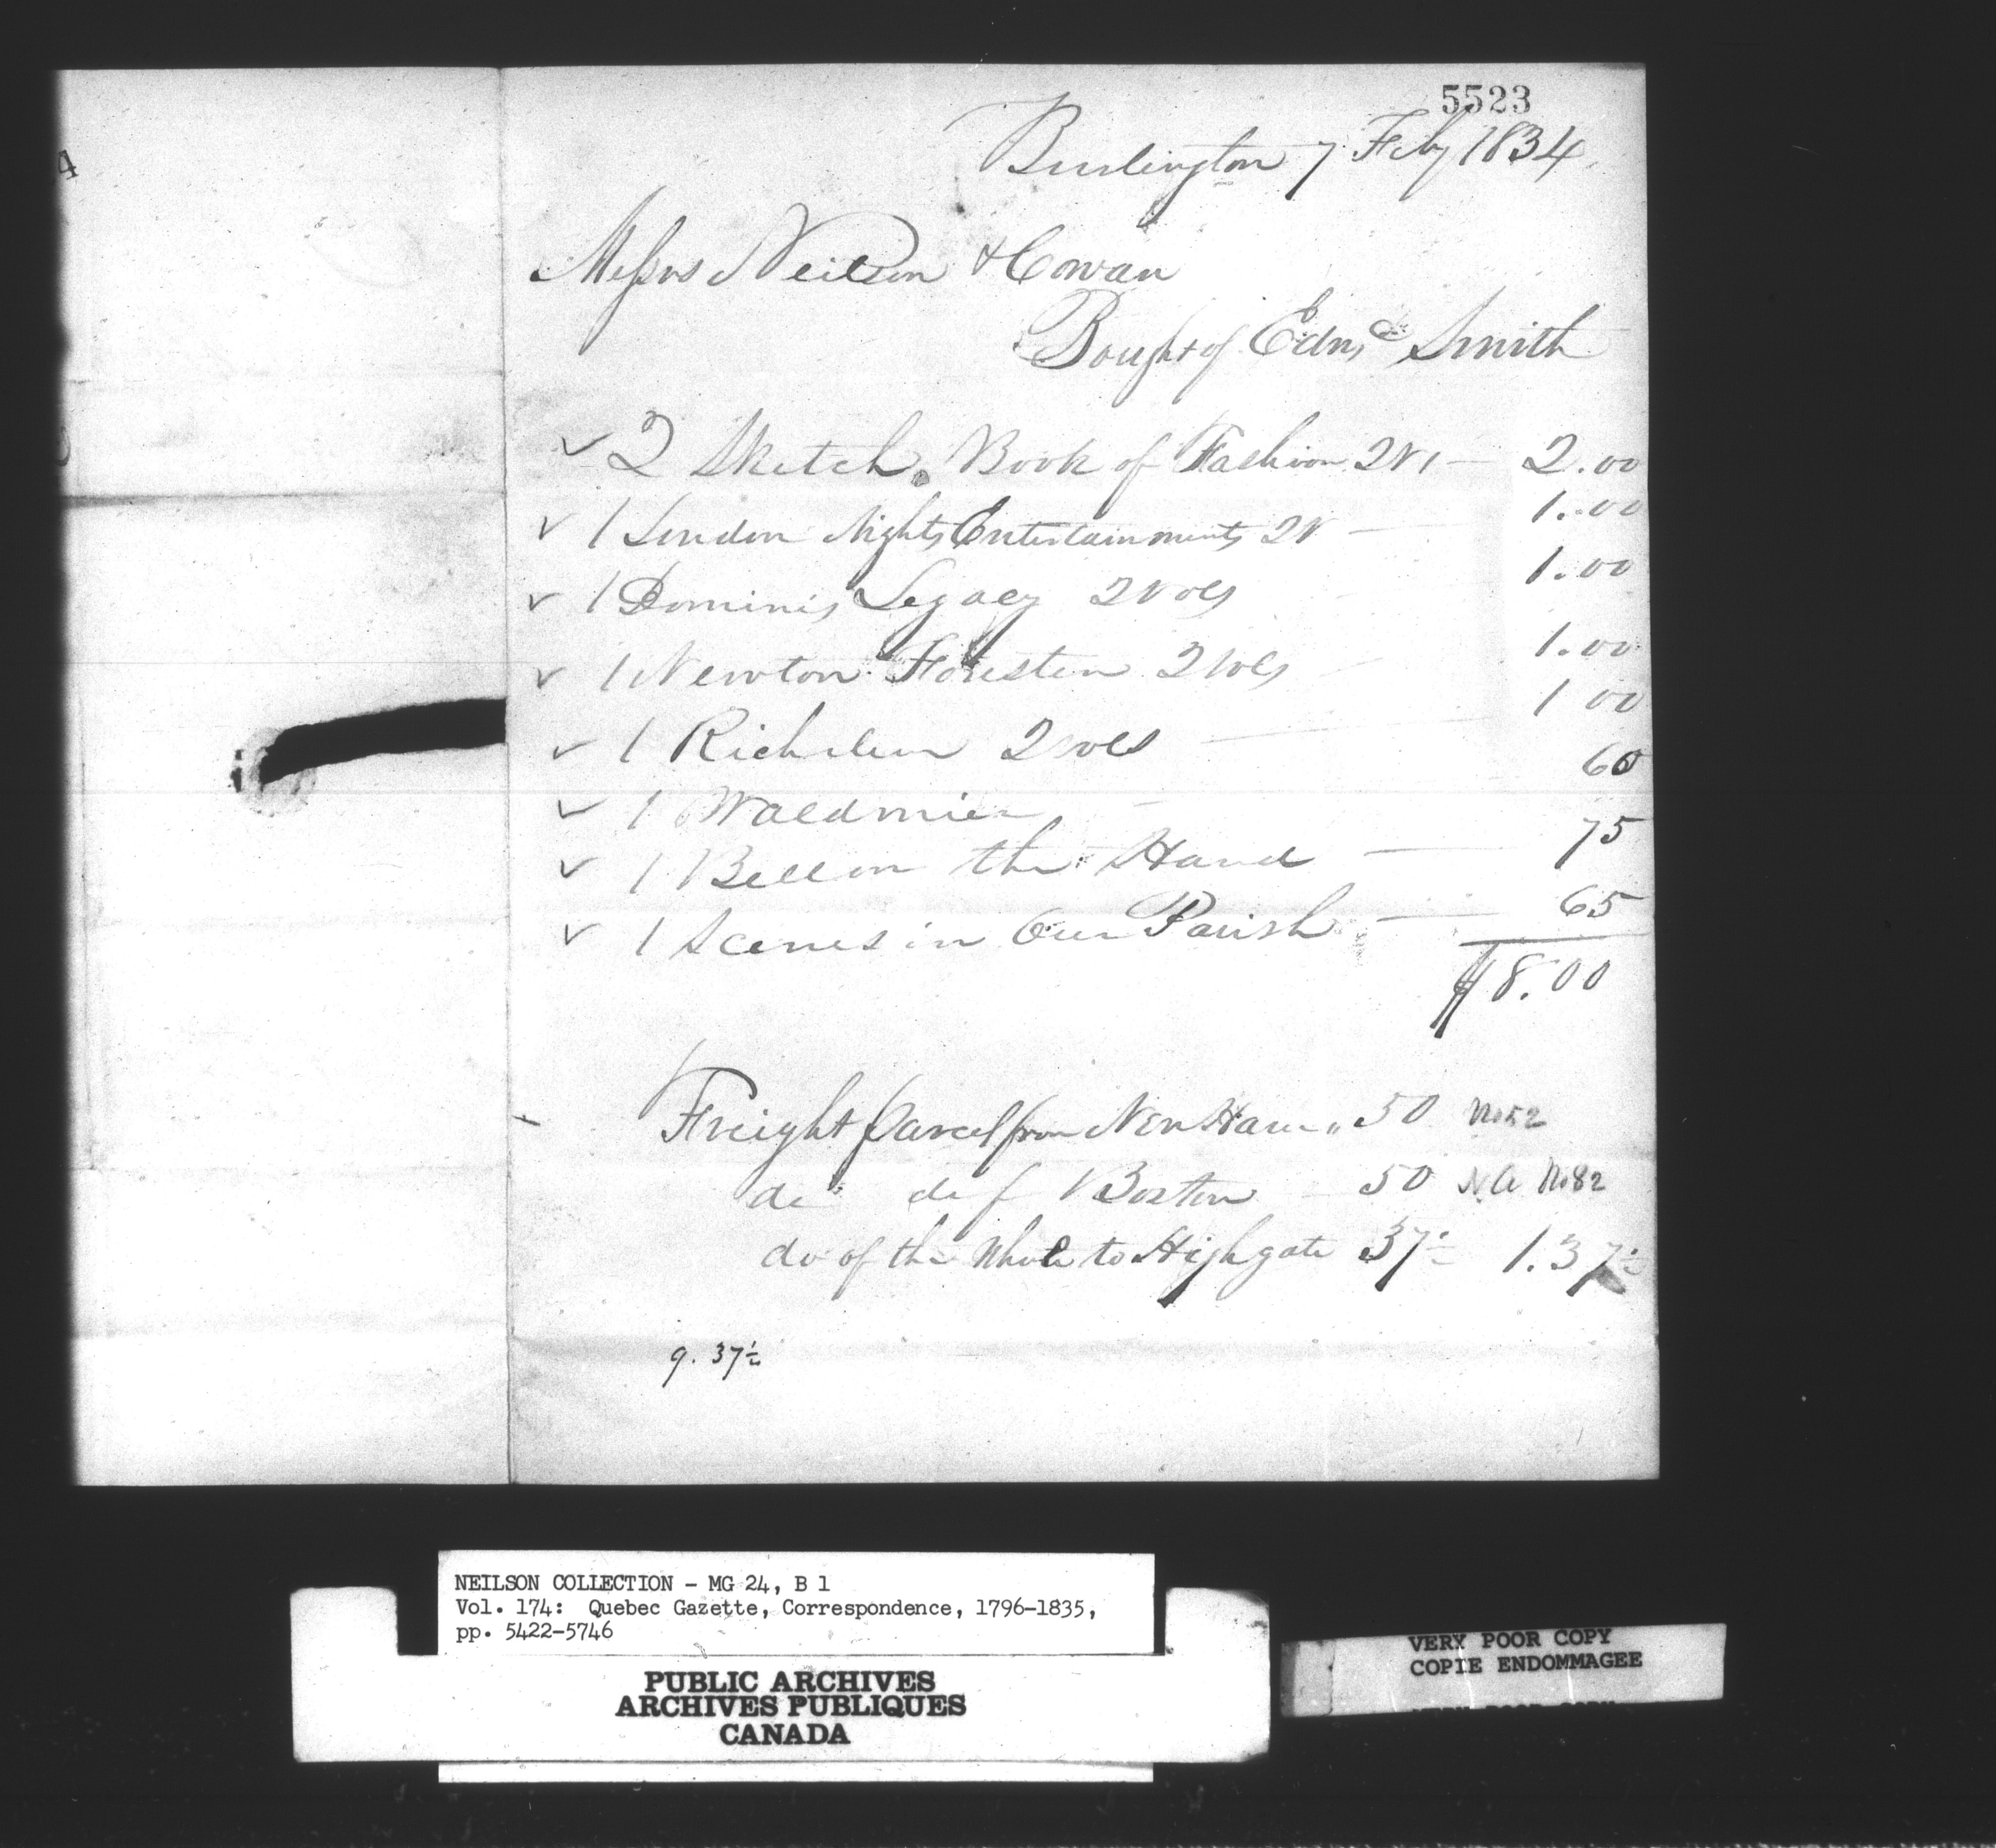 5523
Burlington 7 Feby 1834
Messrs Neilson & Cowan
Bought of Edmd Smith
✓ 2 Sketch Book of Fashion 2 V, — 2.00
✓ 1 London Nights Entertainments 2 V — 1.00
✓ 1 Dominis Legacy 2 vols 1.00
✓ 1 Newton Forester 2 vols 1.00
✓ 1 Richelieu 2 vols — 1 00
✓ 1 Waldmier 60
✓ 1 Bell on the Hand — 75
✓ 1 Scenes in Our Parish — 65
$8.00
Freight parcel from New Haven " 50 No 52
do do f Boston 50 N.A No 82
do of the Whole to Highgate 37½ 1.37½
9.37½
NEILSON COLLECTION - MG 24, B 1
Vol. 174: Quebec Gazette, Correspondence, 1796-1835,
pp. 5422-5746
PUBLIC ARCHIVES
ARCHIVES PUBLIQUES
CANADA
VERY POOR COPY
COPIE ENDOMMAGEE